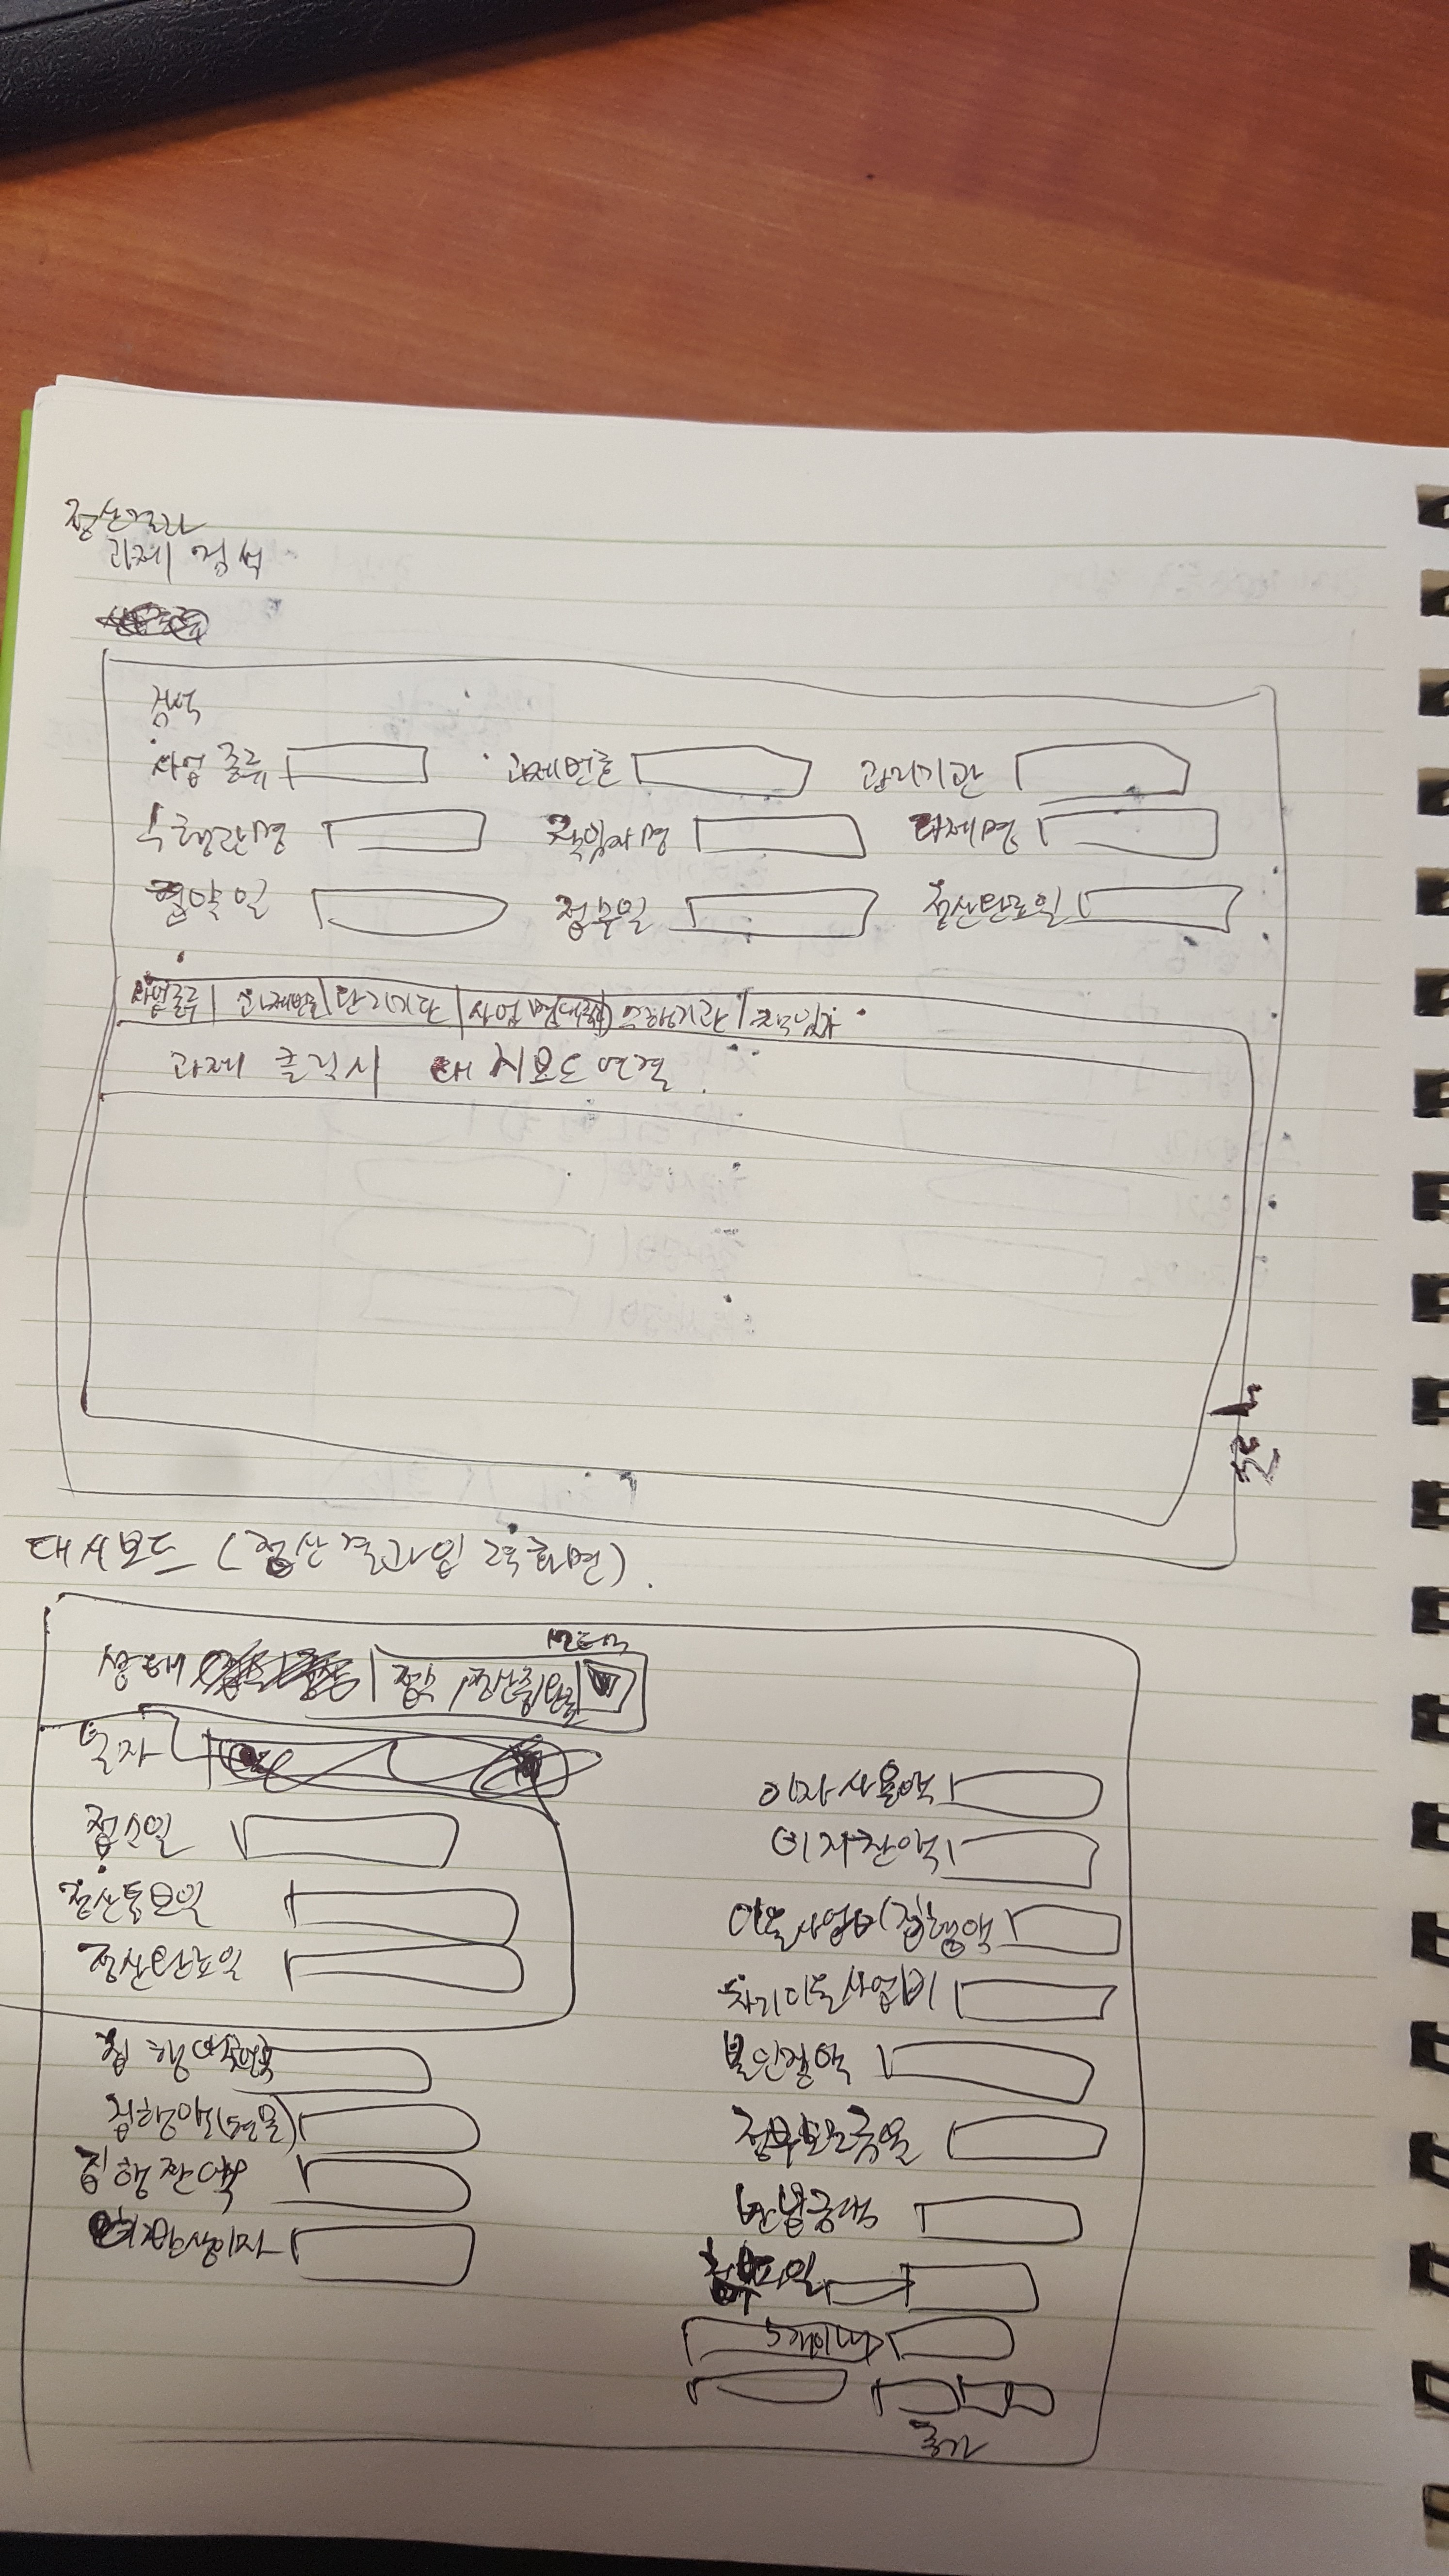 정산결과
과제 검색
검색
사업종류 과제번호 관리기관
수행기관명 책임자명 과제명
협약일 접수일 정산완료일
사업종류 과제번호 관리기관 사업명 수행기관 책임자
과제 클릭시 대시보드 연결
대시보드 (정산결과입력화면)
상태 접수 / 정산중 / 완료
일자
접수일
정산통보일
정산완료일
집행액(현물)
집행잔액
이자사용액
이자잔액
이월사업비(집행액
차기이월사업비
불인정액
반납금액
첨부파일
5개이내
추가